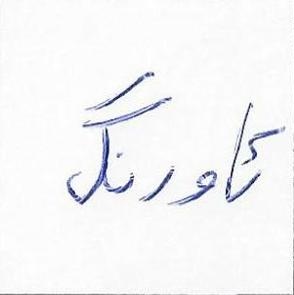 ئاورنگ